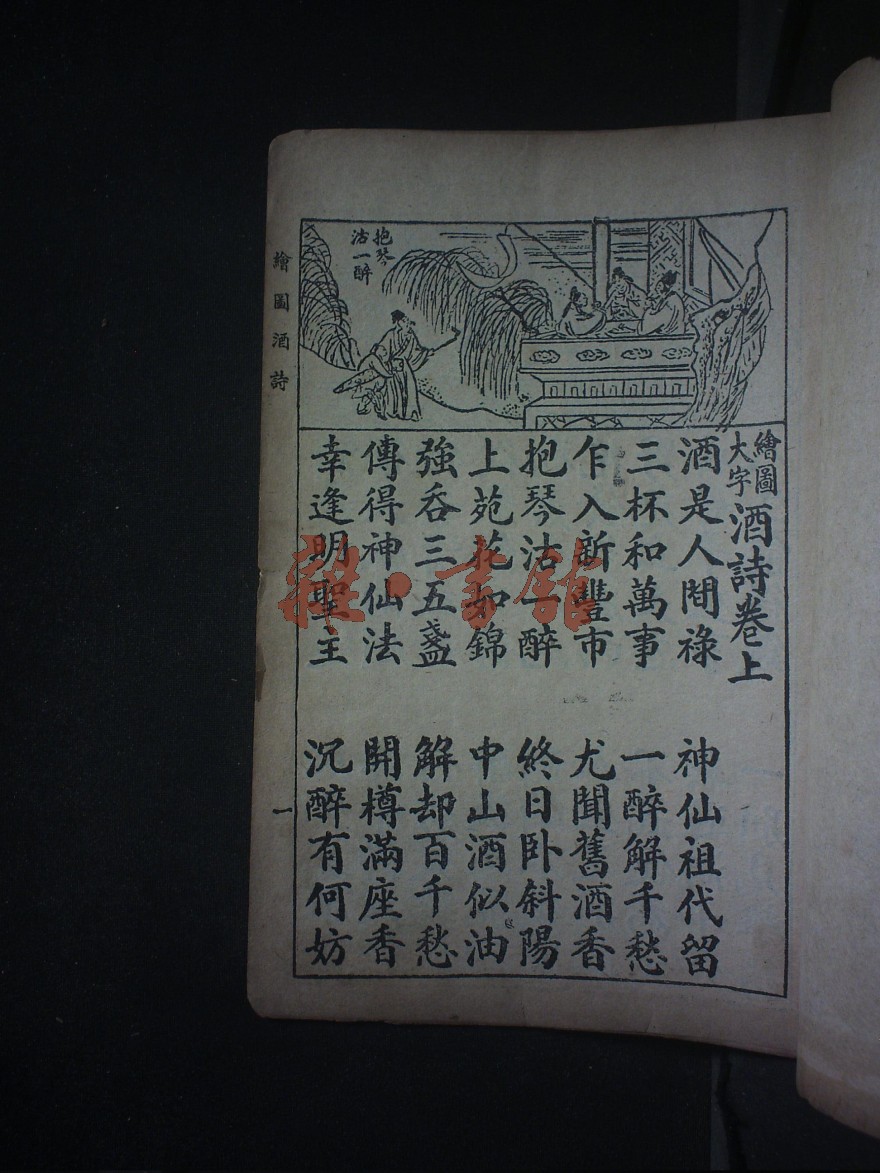 抱琴
沽一醉
繪圖酒詩
繪圖
大字
酒詩卷上
酒是人間祿
神仙祖代留
三杯和萬事
一醉解千愁
乍入新豐市
尤聞舊酒香
抱琴沽一醉
終日卧斜陽
上苑花如錦
中山酒似油
強吞三五盞
解却百千愁
傳得神仙法
開樽滿座香
幸逢明聖主
沉醉有何妨
一
雜·書館